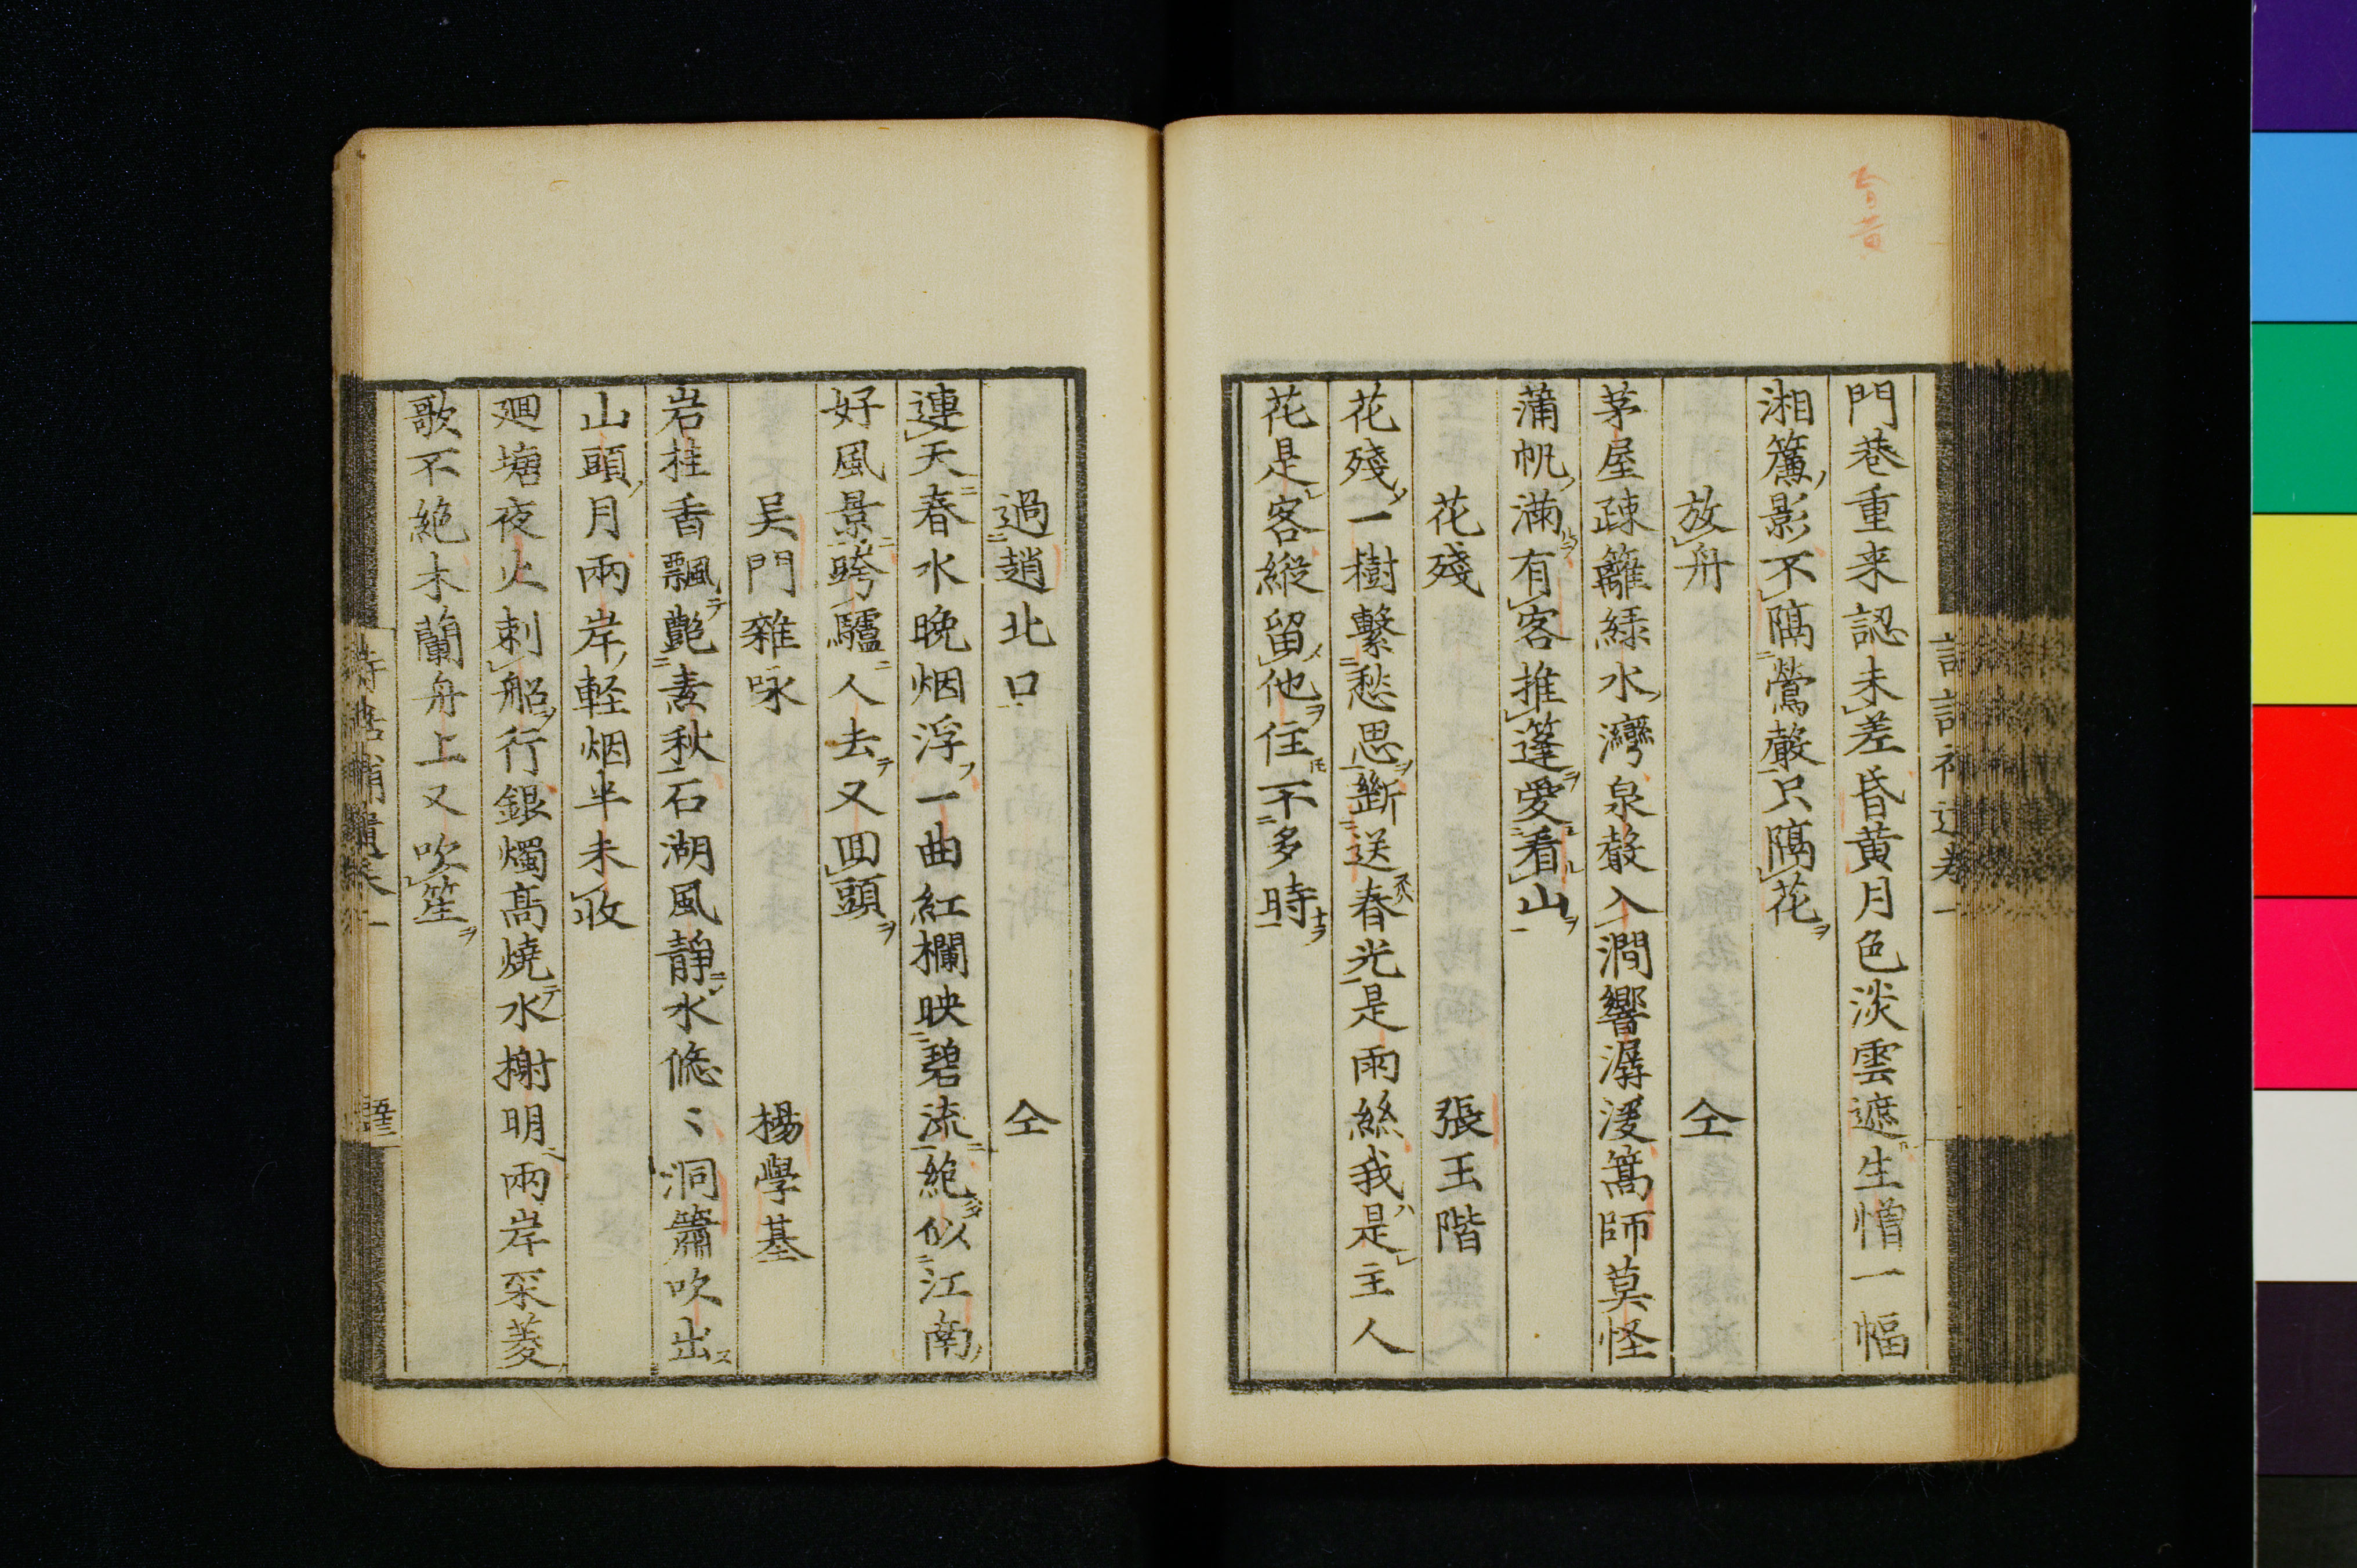 門巷重来認未差昏黄月色淡雲遮生憎一幅
湘簾影不隔鶯聲只隔花
放舟 仝
茅屋疎籬緑水灣泉聲入澗響潺湲篙師莫怪
蒲帆滿有客推篷愛看山
花殘 張玉階
花殘一樹繫愁思斷送春光是雨絲我是主人
花是客縱留他住不多時
過趙北口 仝
連天春水晚烟浮一曲紅欄映碧流絶似江南
好風景跨驢人去又回頭
吴門雜咏 楊學基
岩桂香飄艶素秋石湖風静水悠〻洞簫吹出
山頭月兩岸軽烟半未收
廻塘夜火刺船行銀燭高燒水榭明兩岸采菱
歌不絶木蘭舟上又吹笙